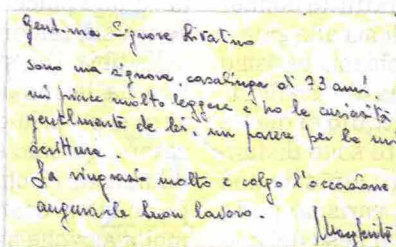 Gent.ma Signora Livatino
sono una signora casalinga di 73 anni,
mi piace molto leggere e ho la curiosità
gentilmente da lei, un parere per la mi
scrittura.
La ringrazio molto e colgo l'occasione
augurarle buon lavoro.
Margherita